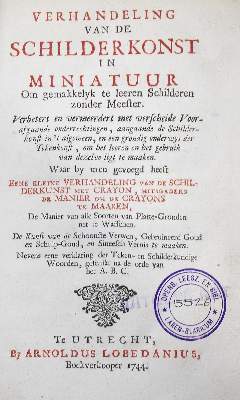 VERHANDELING
VAN DE
SCHILDERKONST
IN
MINIATUUR
Om gemakkelyk te leeren Schilderen
zonder Meester.
Verbetert en vermeerdert met verscheide Voor-
afgaande onderrechtingen, aangaande de Schilder-
konst in't algemeen, en een grondig onderwys der
Tekenkonst, om het leeren en het gebruik
van dezelve ligt te maaken.
Waar by men gevoegd heeft
EENE KLEINE VERHANDELING VAN DE SCHIL-
DERKUNST MET CRAYON, MITSGADERS
DE MANIER OM DE CRAYONS
TE MAAKEN,
De Manier van alle Soorten van Platte-Gronden
net te Wasschen.
De Konst van de Schoonste Verwen, Gebruineerd Goud
en Schulp-Goud, en Sineesch Vernis te maaken.
Nevens eene verklaring der Teken- en Schilderkundige
Woorden, gestelt na de orde van
het A. B. C.
OPENB. LEESZ. EN BIBL.
15526
LAREN-BLARICUM
Te UTRECHT,
By ARNOLDUS LOBEDANIUS,
Boekverkooper 1744.